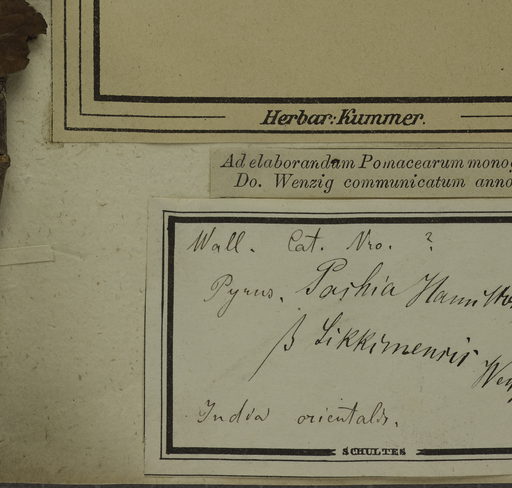 Herbar: Kummer.
Ad elaborandam Pomacearum monog
Do. Wenzig communicatum anno
Wall. Cat. Nro. ?
Pyrus. Pashia Hamilto
β Sikkimensis
Wen
India orientalis.
SCHULTES